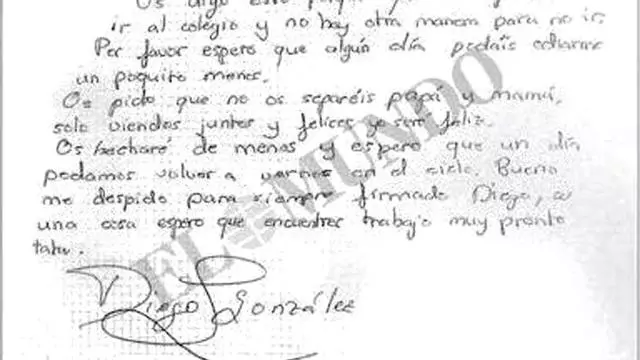 Os digo esto porque
ir al colegio y no hay otra manera para no ir.
Por favor espero que algún día podáis echarme
un poquito menos.
Os pido que no os separéis papá y mamá,
solo viendos juntos y felices yo seré feliz.
Os hecharé de menos y espero que un día
podamos volver a vernos en el cielo. Bueno
me despido para siempre firmado Diego, a
una cosa espero que encuentres trabajo muy pronto
tata.
Diego González
EL MUNDO